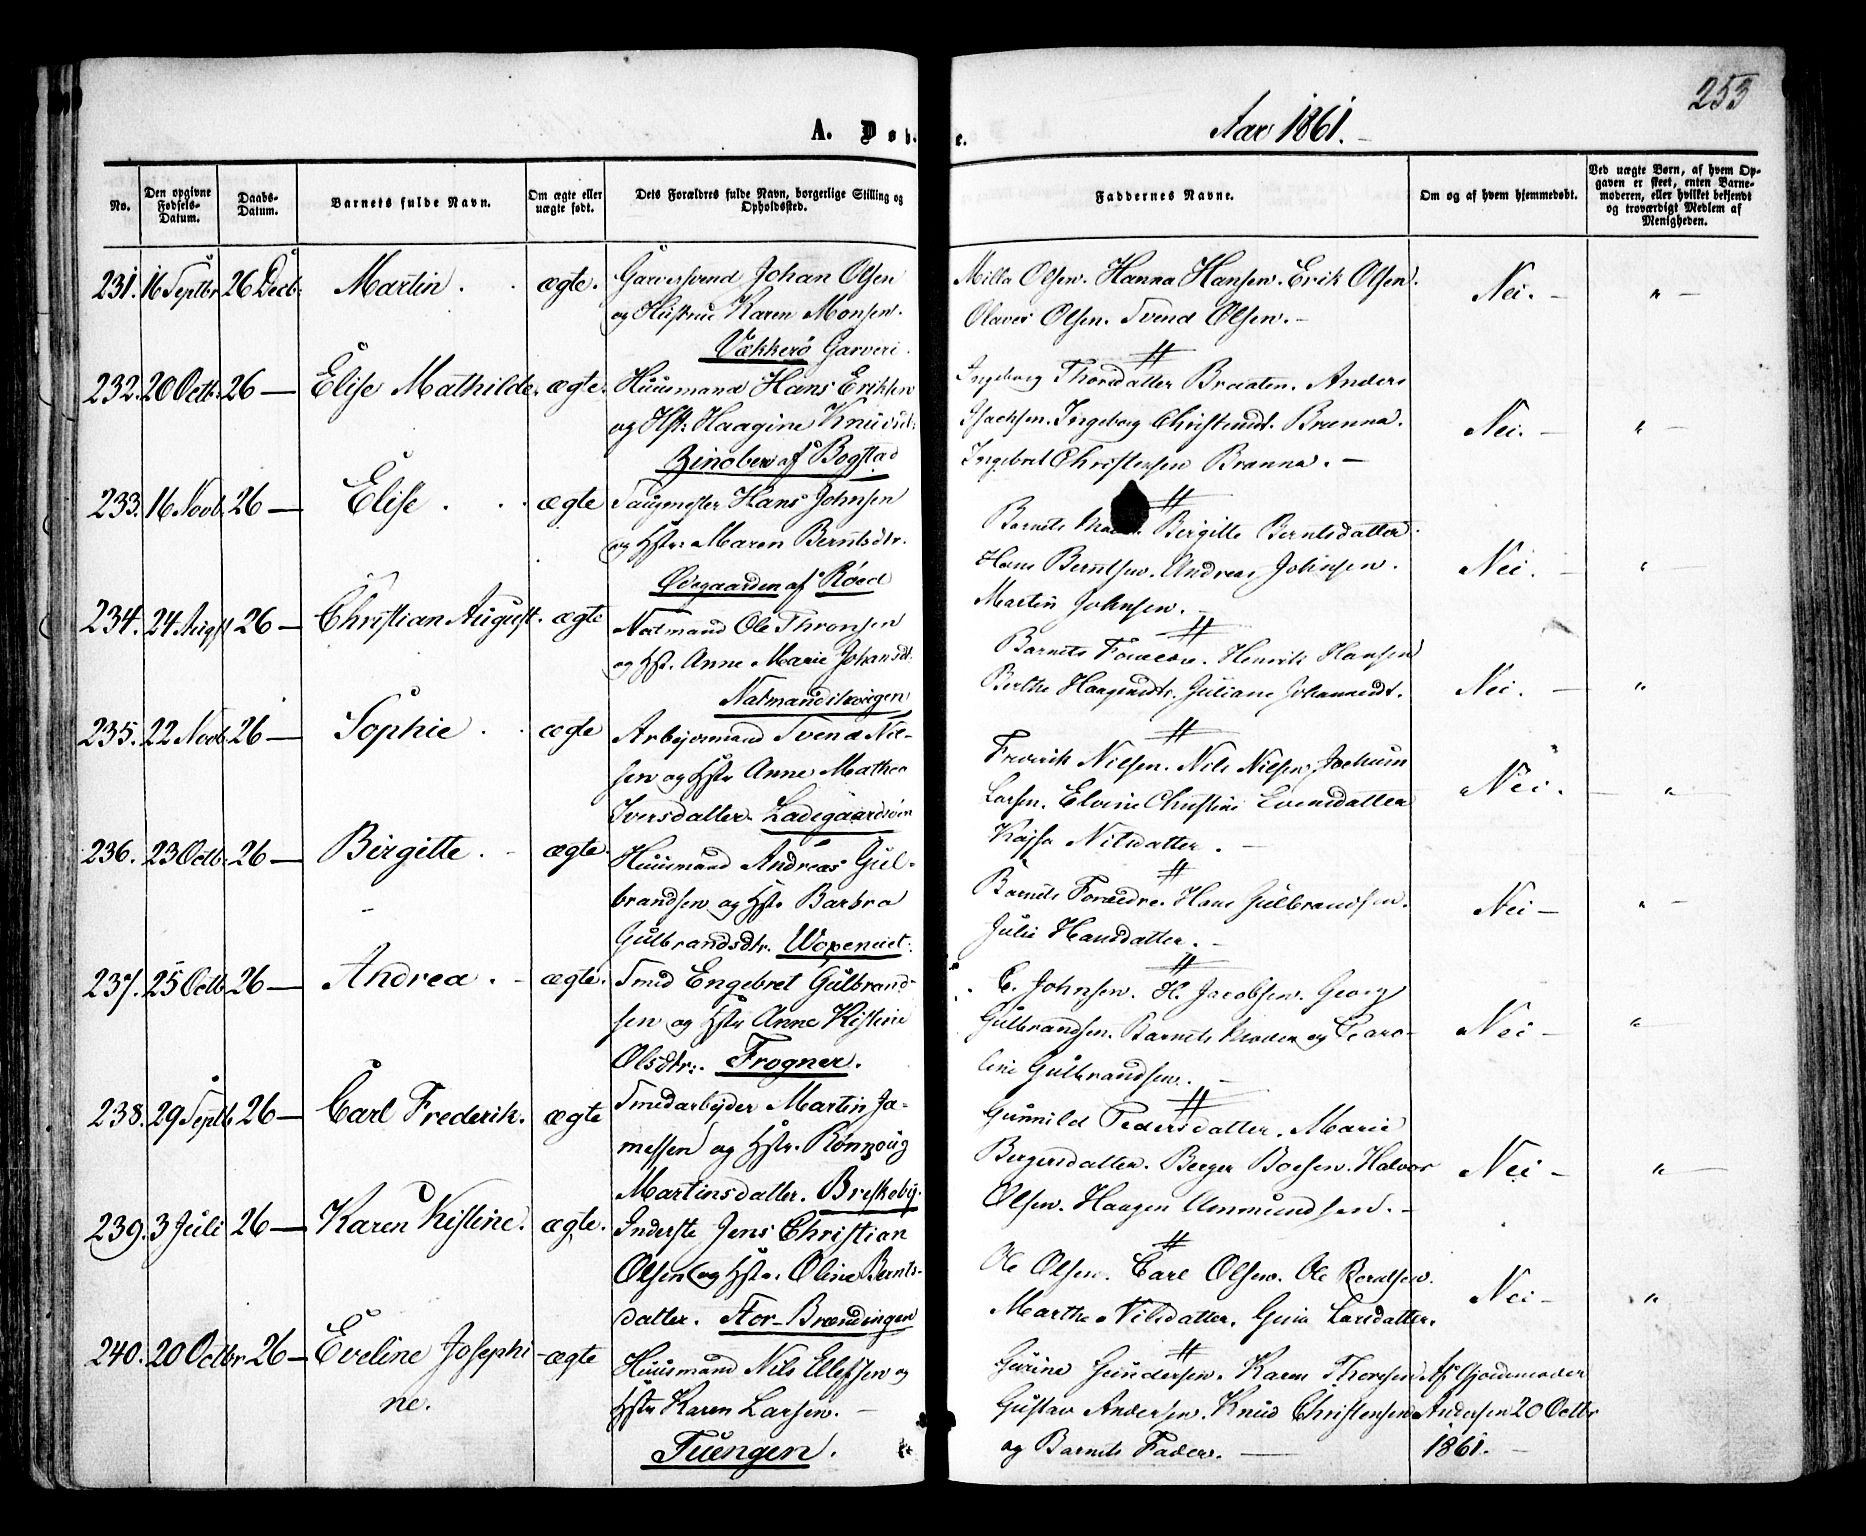 253
A. Døb e. Aar 1861.
No. Den opgivne Fødsels-Datum. Daabs-Datum. Barnets fulde Navn. Om ægte eller uægte født. Dets Forældres fulde Navn, borgerlige Stilling og Opholdssted. Faddernes Navne. Om og af hvem hjemmedøbt. Ved uægte Børn, af hvem Opgaven er skeet, enten Barnemoderen, eller hvilket bekjendt og troværdigt Medlem af Menigheden.
231. 16 Septbr 26 Decb: Martin. ægte. Garversvend Johan Olsen Milla Olsen. Hanna Hansen. Erik Olsen. Nei. — " —
og Hustrue Karen Monsen. Olaves Olsen. Svend Olsen. —
Vækkerø Garveri.
232. 20 Octb: 26 — Elise Mathilde. ægte. Huusmand Hans Eriksen Ingeborg Thorsdatter Braaten. Anders
og Hst: Haagine Knudsd: Isachsen. Ingeborg Christensdt. Brænna. Nei. — " —
Zinober af Bogstad Ingebret Christensen Brænna. —
233. 16 Novb. 26 — Elise. ægte Saugmester Hans Johnsen Barnets Birgitte Berntsdatter.
og Hstr: Maren Berntsdtr. Hans Berntsen. Andreas Johnsen. Nei. — " —
Ødegaarden af Røed Martin Johnsen. —
234. 24 Augst 26 — Christian August. ægte Natmand Ole Thronsen Barnets Forældre. Henrik Hansen
og Hst. Anne Marie Johansdt. Berthe Haagensdtr. Juliane Johannesdt. Nei. — "
Natmandskvigen
235. 22 Novb. 26 — Sophie. ægte Arbejdsmand Svend Niel- Frederik Nilsen. Nils Nilsen, Jochum
sen og Hstr Anne Mathea Larsen. Elvine Christine Evensdatter Nei. — " —
Iversdatter. Ladegaardsøen Kajsa Nilsdatter. —
236. 23 Octb: 26 — Birgitte. ægte. Huusmand Andreas Gul- Barnets Forældre. Hans Gulbrandsen.
brandsen og Hst. Barbra Julie Hansdatter. — Nei — " —
Gulbrandsdtr. Wopeneiet.
237. 25 Octb 26 — Andrea. ægte. Smed Engebret Gulbrand- C. Johnsen. H. Jacobsen. Georg
sen og Hstr Anne Kistine Gulbrandsen. Barnets Moder og Caro- Nei — " —
Olsdtr:. Frogner. line Gulbrandsen. —
238. 29 Septb. 26 — Carl Frederik. ægte Smedarbejder Martin Ja- Gunnild Pedersdatter. Marie
messen og Hstr. Rønnoug Bergersdatter. Berger Boesen. Halvor Nei — " —
Martinsdatter. Breskeby. Olsen. Haagen Ammundsen. —
239. 3 Juli 26 — Karen Kistine. ægte. Inderste Jens Christian Ole Olsen. Carl Olsen. Ole Berntsen.
Olsen og Hstr. Oline Bernts- Marthe Nilsdatter. Gina Larsdatter. Nei — "
datter. Stor-Brændingen
240. 20 Octbr 26 — Eveline Josephi- ægte Huusmand Nils Ellefsen og Gurine Gundersen. Karen Thoresen. Af Gjordemoder
ne. Hstr Karen Larsen. — Gustav Andersen. Knud Christensen Andersen 20 Octbr
Tuengen. og Barnets Fader. — 1861. —